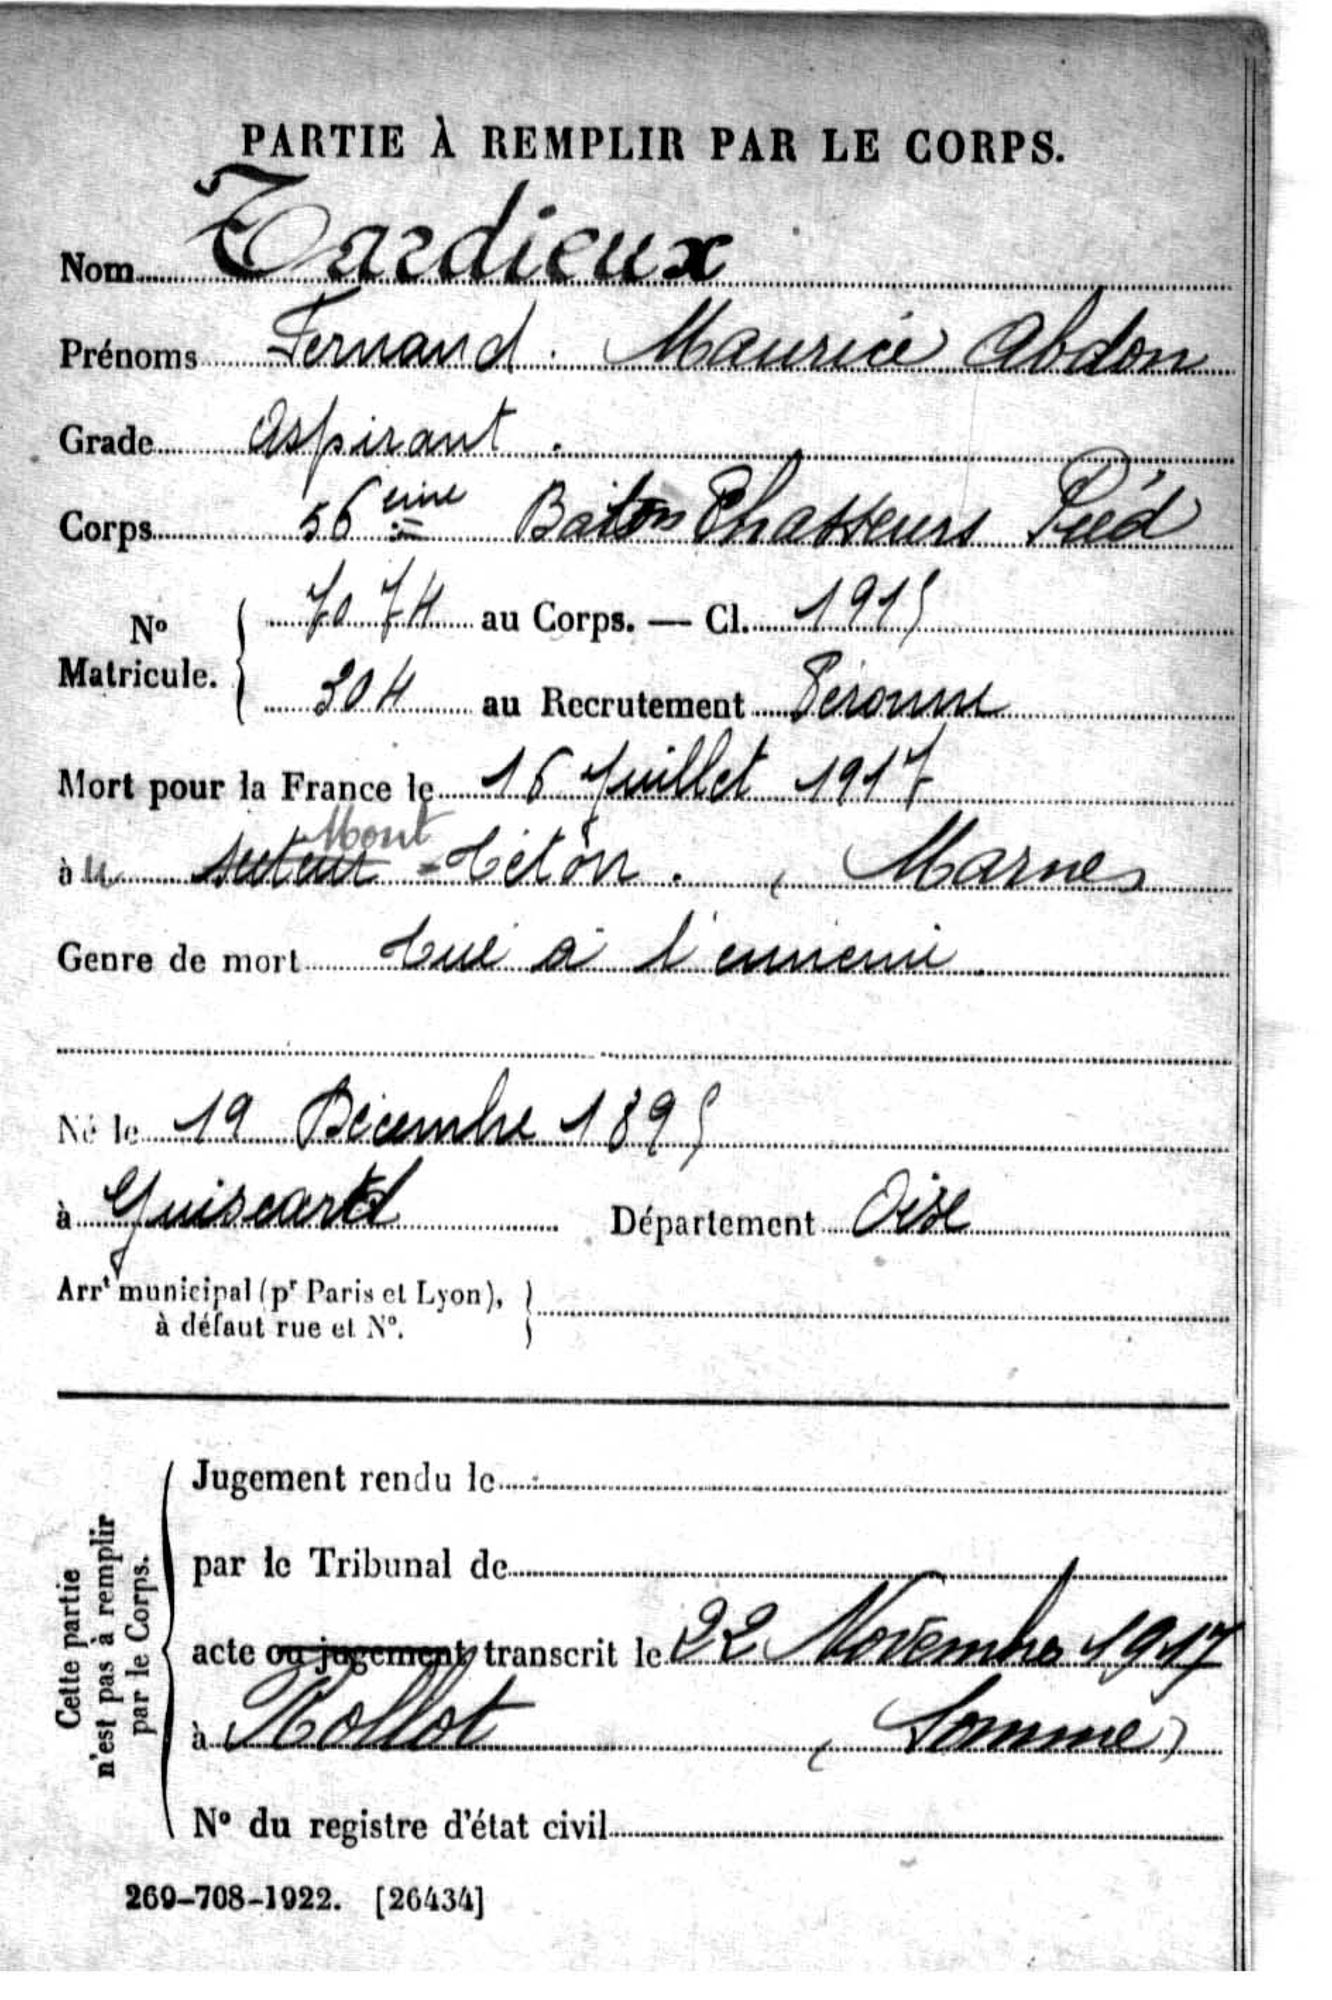 PARTIE À REMPLIR PAR LE CORPS.
Nom Tardieux
Prénoms Fernand. Maurice Abdon
Grade Aspirant.
Corps 56 ème Baton Chasseurs Pied
No Matricule. 7074 au Corps. — Cl. 1915
304 au Recrutement Péronne
Mort pour la France le 16 Juillet 1917
Mont
à secteur - Téton. ( Marne)
Genre de mort tué à l'ennemi
Né le 19 Décembre 1895
à Guiscard Département Oise
Arrt municipal (pr Paris et Lyon),
à défaut rue et No.
Cette partie n'est pas à remplir par le Corps.
Jugement rendu le
par le Tribunal de
acte ou jugement transcrit le 22 Novembre 1917
à Rollot (Somme)
No du registre d'état civil
269-708-1922. [26434]